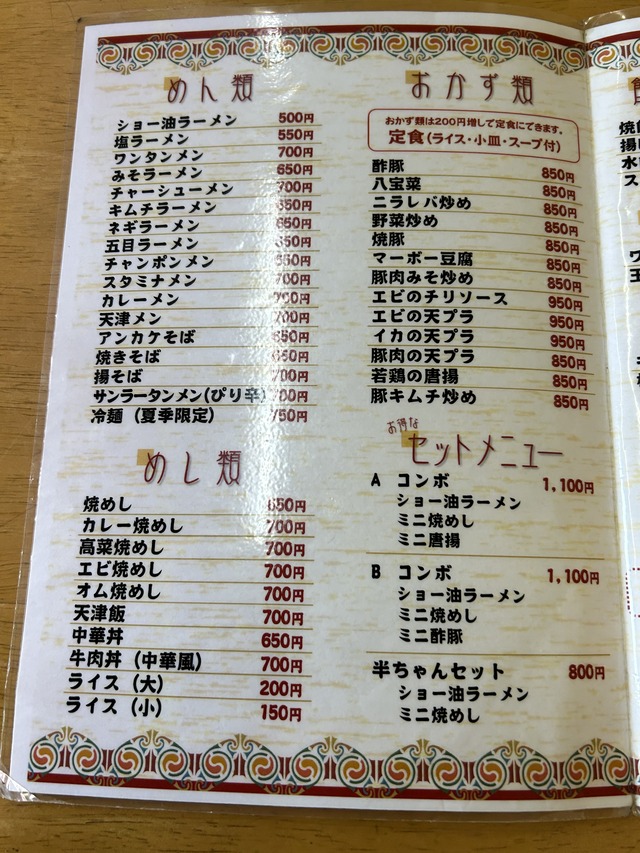 めん類
ショー油ラーメン 500円
塩ラーメン 550円
ワンタンメン 700円
みそラーメン 650円
チャーシューメン 700円
キムチラーメン 650円
ネギラーメン 650円
五目ラーメン 650円
チャンポンメン 650円
スタミナメン 700円
カレーメン 700円
天津メン 700円
アンカケそば 650円
焼きそば 650円
揚そば 700円
サンラータンメン(ぴり辛) 700円
冷麺(夏季限定) 750円
めし類
焼めし 650円
カレー焼めし 700円
高菜焼めし 700円
エビ焼めし 700円
オム焼めし 700円
天津飯 700円
中華丼 650円
牛肉丼(中華風) 700円
ライス(大) 200円
ライス(小) 150円
おかず類
おかず類は200円増しで定食にできます。
定食(ライス・小皿・スープ付)
酢豚 850円
八宝菜 850円
ニラレバ炒め 850円
野菜炒め 850円
焼豚 850円
マーボー豆腐 850円
豚肉みそ炒め 850円
エビのチリソース 950円
エビの天プラ 950円
イカの天プラ 950円
豚肉の天プラ 850円
若鶏の唐揚 850円
豚キムチ炒め 850円
お得な
セットメニュー
A コンボ 1,100円
ショー油ラーメン
ミニ焼めし
ミニ唐揚
B コンボ 1,100円
ショー油ラーメン
ミニ焼めし
ミニ酢豚
半ちゃんセット 800円
ショー油ラーメン
ミニ焼めし